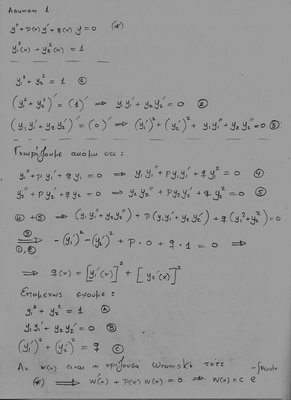 Άσκηση 1
y''+p(x)y'+q(x)y=0 (*)
y₁²(x)+y₂²(x)=1
y₁²+y₂²=1 ①
(y₁²+y₂²)'=(1)' ⟹ y₁y₁'+y₂y₂'=0 ②
(y₁y₁'+y₂y₂')'=(0)' ⟹ (y₁')²+(y₂')²+y₁y₁''+y₂y₂''=0 ③
Γνωρίζουμε ακόμα ότι:
y₁''+py₁'+qy₁=0 ⟹ y₁y₁''+py₁y₁'+qy₁²=0 ④
y₂''+py₂'+qy₂=0 ⟹ y₂y₂''+py₂y₂'+qy₂²=0 ⑤
④+⑤ ⟹ (y₁y₁''+y₂y₂'')+p(y₁y₁'+y₂y₂')+q(y₁²+y₂²)=0
③ ①,② ⟹ -(y₁')²-(y₂')²+p·0+q·1=0 ⟹
⟹ q(x)=[y₁'(x)]²+[y₂'(x)]²
Επομένως έχουμε:
y₁²+y₂²=1 Ⓐ
y₁y₁'+y₂y₂'=0 Ⓑ
(y₁')²+(y₂')²=q Ⓒ
Αν w(x) είναι η ορίζουσα Wronski τότε
(*) ⟹ w'(x)+p(x)w(x)=0 ⟹ w(x)=c e^-∫p(x)dx